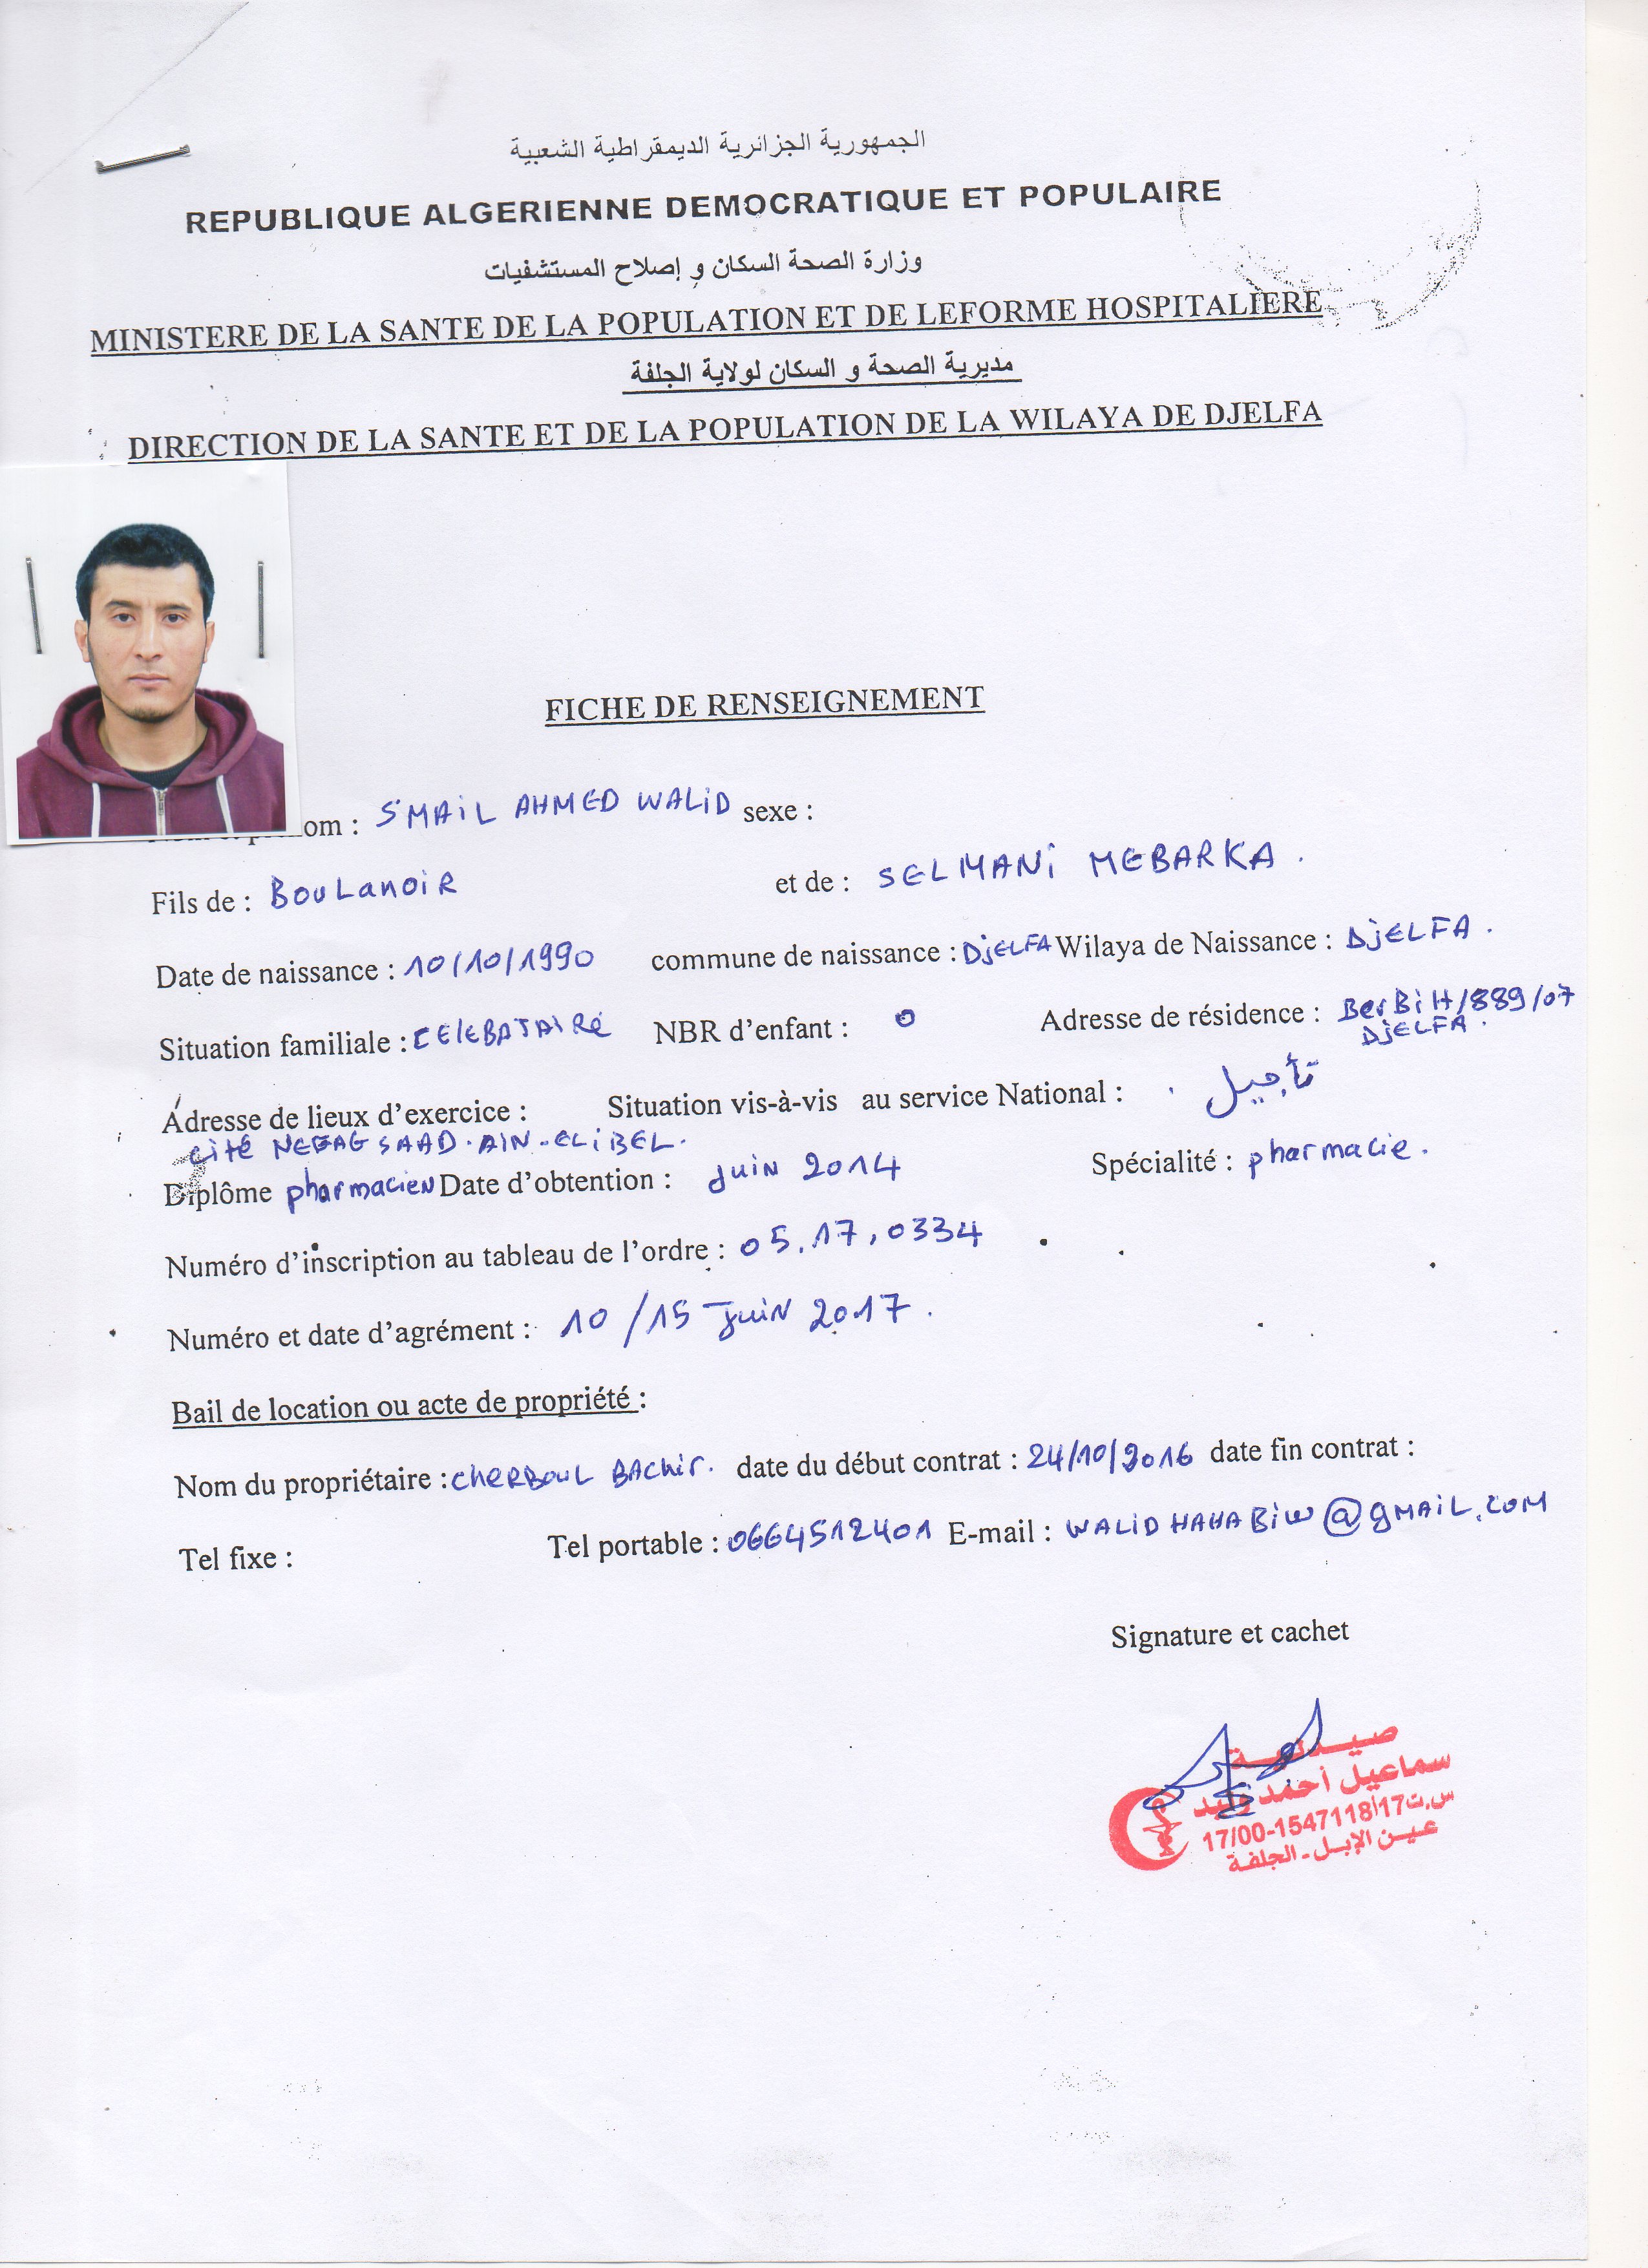 الجمهورية الجزائرية الديمقراطية الشعبية
REPUBLIQUE ALGERIENNE DEMOCRATIQUE ET POPULAIRE
وزارة الصحة السكان و إصلاح المستشفيات
MINISTERE DE LA SANTE DE LA POPULATION ET DE LEFORME HOSPITALIERE
مديرية الصحة و السكان لولاية الجلفة
DIRECTION DE LA SANTE ET DE LA POPULATION DE LA WILAYA DE DJELFA
FICHE DE RENSEIGNEMENT
om : S'MAiL AHMED WALiD sexe :
Fils de : BouLanoiR et de : SELMANi MEBARKA .
Date de naissance : 10/10/1990 commune de naissance : DjELFA Wilaya de Naissance : DjELFA .
Situation familiale : CELEBATAiRe NBR d'enfant : 0 Adresse de résidence : BerBiH/889/07
DjELFA .
Adresse de lieux d'exercice : Situation vis-à-vis au service National : تأجيل
cité SAAD . AIN - ELiBEL .
Diplôme pharmacien Date d'obtention : juin 2014 Spécialité : pharmacie .
Numéro d'inscription au tableau de l'ordre : 05.17.0334
Numéro et date d'agrément : 10 /15 Juin 2017 .
Bail de location ou acte de propriété :
Nom du propriétaire : CHERBOUL BACHir . date du début contrat : 24/10/2016 date fin contrat :
Tel fixe : Tel portable : 0664512401 E-mail : WALiDHAHABiW@gMAiL.COM
Signature et cachet
صيدلية
سماعيل أحمد وليد
س.ت 17/00-1547118ا17
عين الإبل - الجلفة